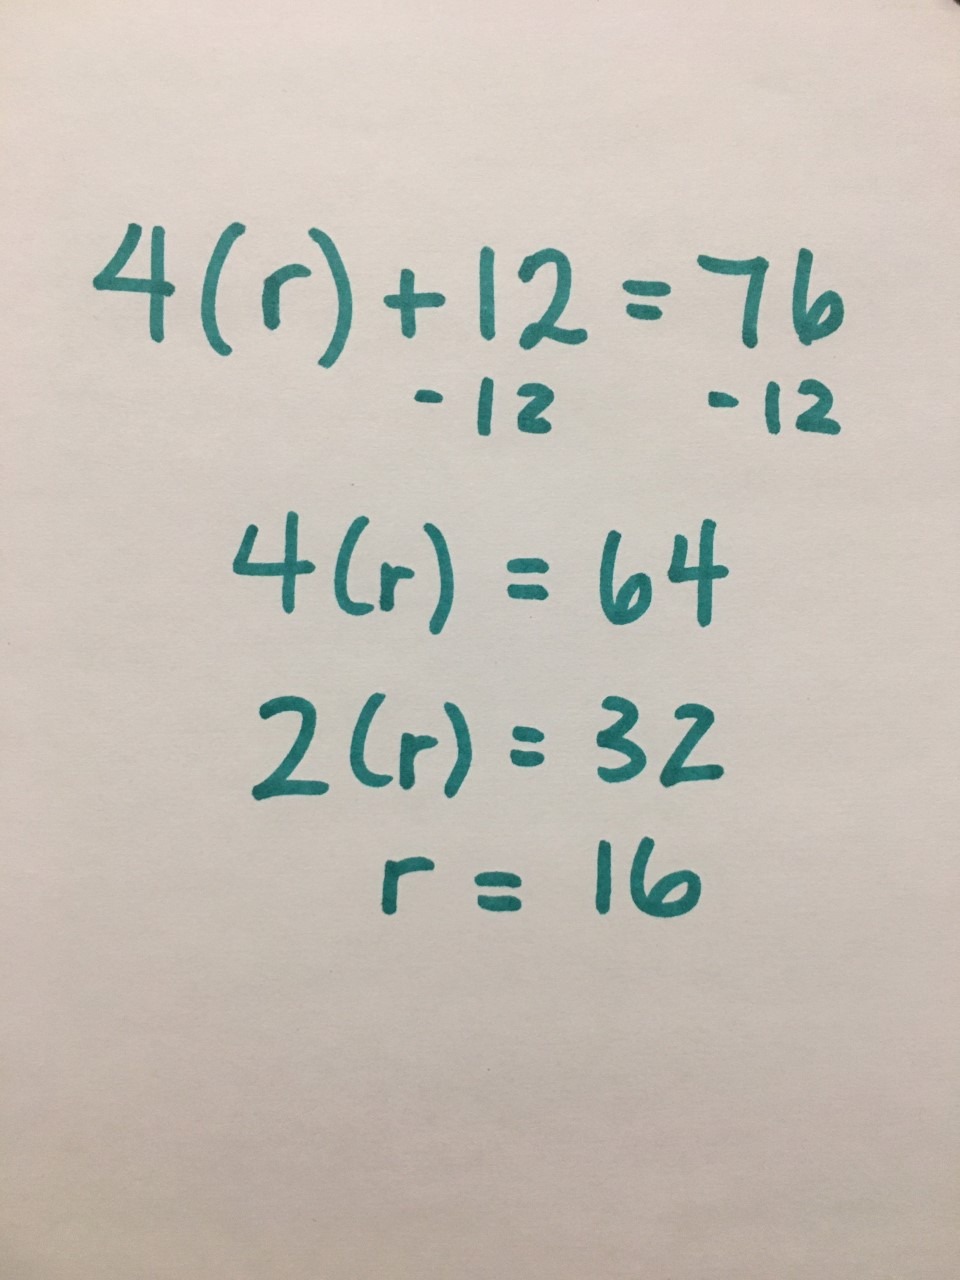 4(r)+12=76
-12 -12
4(r) = 64
2(r) = 32
r = 16